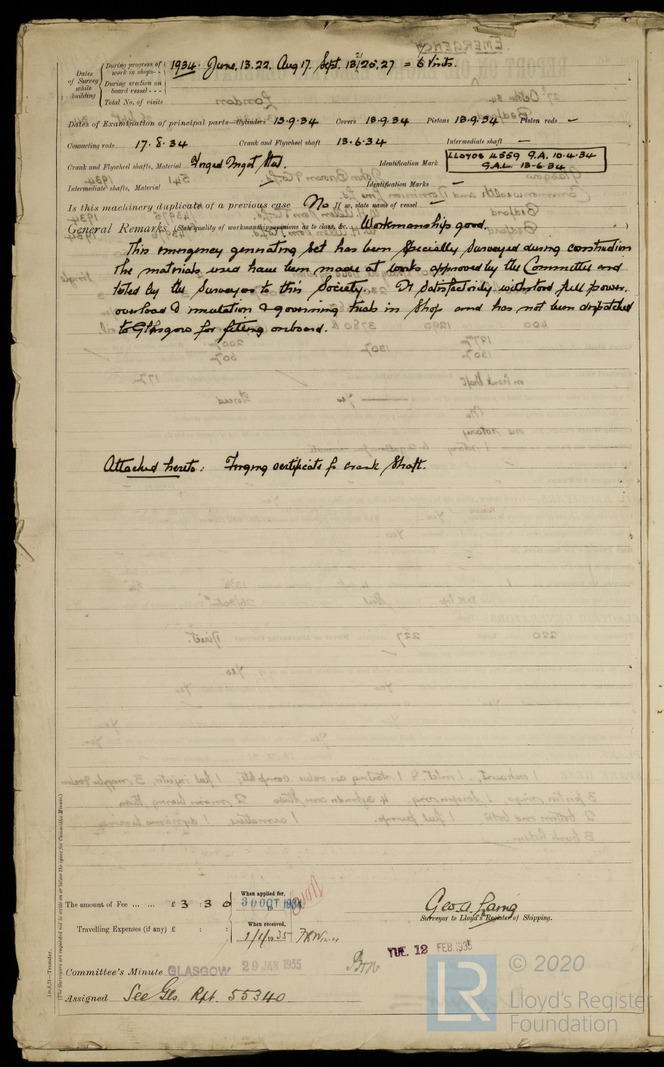 EMERGENCY
Dates of Survey while building
During progress of work in shops - - 1934. June, 13.22, Aug 17. Sept. 13/20.27 = 6 Visits.
During erection on board vessel - - -
Total No. of visits
Dates of Examination of principal parts—Cylinders 13.9.34 Covers 13.9.34 Pistons 13.9.34 Piston rods —
Connecting rods 17.8.34 Crank and Flywheel shafts 13.6.34 Intermediate shafts —
Crank and Flywheel shafts, Material Forged Ingot Steel. Identification Mark LLOYDS 4559 G.A. 10.4.34
G.A.L. 13-6-34
Intermediate shafts, Material — Identification Marks —
Is this machinery duplicate of a previous case No If so, state name of vessel —
General Remarks (State quality of workmanship, opinions as to class, &c. Workmanship good.
This emergency generating set has been specially surveyed during construction
The materials used have been made at works approved by the Committee and
tested by the Surveyors to this Society. It satisfactorily withstood full power,
overload & insulation & governing trials in shop and has not been dispatched
to Glasgow for fitting onboard.
Attached hereto: Forging certificate for crank shaft.
The amount of Fee ... ... £ 3 : 3 0 When applied for, 30 OCT 1934
Travelling Expenses (if any) £ : : When received, 1/1/1935
Geo. A. Laing
Surveyor to Lloyd's Register of Shipping.
TUE. 12 FEB. 1935
Committee's Minute GLASGOW 29 JAN 1935
Assigned See Gls. Rpt. 55340
(The Surveyors are requested not to write on or below the space for Committee's Minute.)
© 2020
LR Lloyd's Register
Foundation